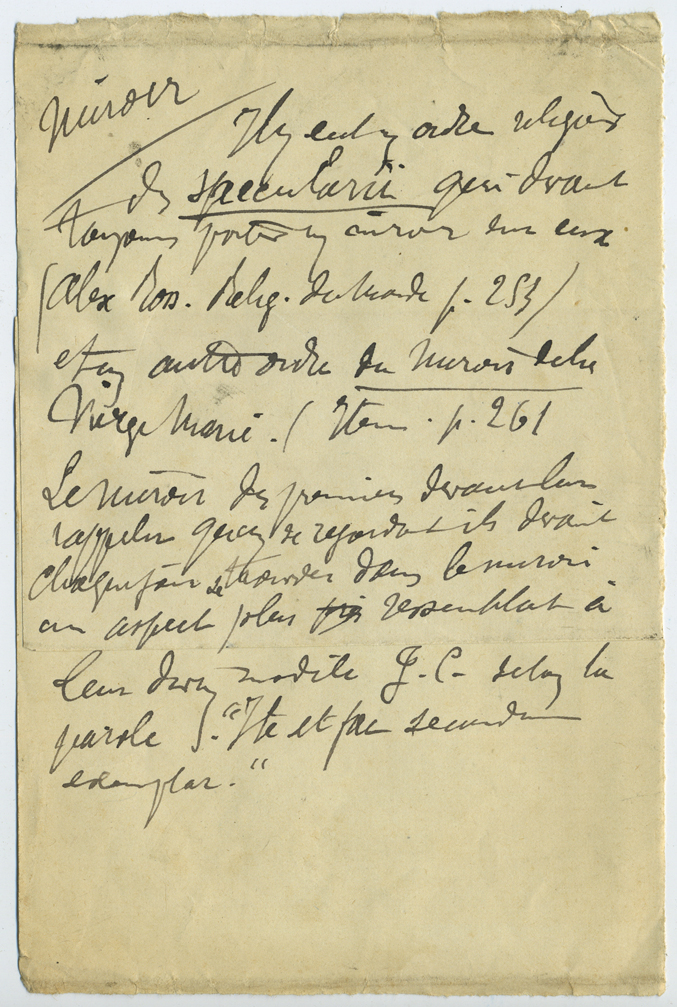 Miroir
Il y eut un ordre religieux
des specularii qui devaient
toujours porter un miroir sur eux
(Alex Ross. Relig. du Monde p. 253)
et un autre ordre du Miroir de la
Vierge Marie. (Item. p. 261
Le miroir des premiers devant leur
rappeler qu'en se regardant ils devaient
chaque jour se trouver dans le miroir
un aspect plus ressemblant à
leur divin modèle J. C. selon la
parole : "Ite et fac secundum
exemplar."